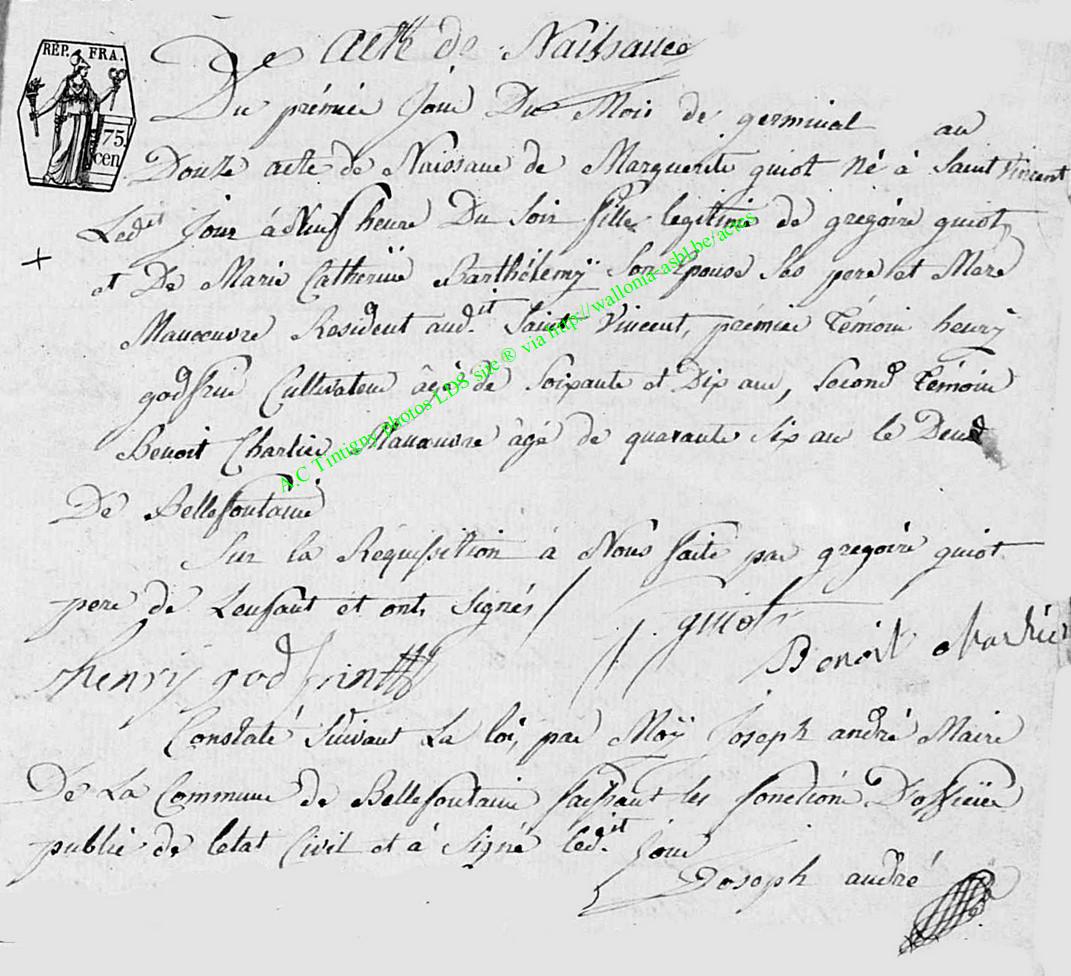 RÉP. FRA.
75.
cen
De Acte de Naissance
Du prémié Jour Du Mois de germinal an
Douze acte de Naissance de Marguerite guiot Né à Saint Vincent
Ledit Jour à Neuf heure Du Soir fille legitime de gregoire guiot,
et De Marie Catherine Barthélemÿ Son Epouse Ses pere et Mere
Manoeuvre Resident aud.it Saint Vincent, prémié Témoin henrij
godfrin Cultivateur âgé de Soixante et Dix ans, Second Témoin
Benoit Charlié Manoeuvre âgé de quarante Six an le Deus
De Bellefontaine
Sur la Réquisition à Nous faite par gregoire guiot
pere de Lenfant et ont Signés /
guiot
Benoit
henrij godfrint
Constaté Suivant La loi, par Moÿ Joseph andré Maire
De La Commune de Bellefontaine faissant les fonction D'officier
public de letat Civil et à Signé led.it Jour
Joseph andré
A.C Tintigny photos LDS site ® via http://wallonia-asbl.be/actes